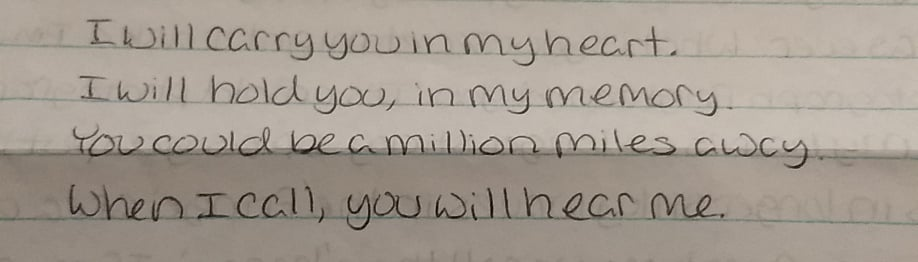 I will carry you in my heart.
I will hold you, in my memory.
You could be a million miles away.
When I call, you will hear me.